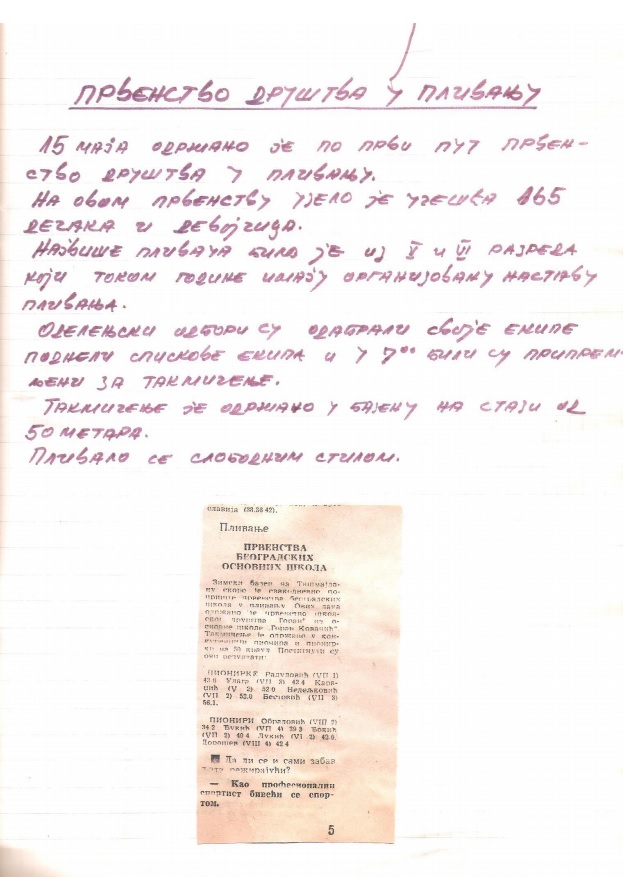 ПРВЕНСТВО ДРУШТВА У ПЛИВАЊУ
15 МАЈА ОДРЖАНО ЈЕ ПО ПРВИ ПУТ ПРВЕН-
СТВО ДРУШТВА У ПЛИВАЊУ.
НА ОВОМ ПРВЕНСТВУ УЗЕЛО ЈЕ УЧЕШЋА 165
ДЕЧАКА И ДЕВОЈЧИЦА.
НАЈВИШЕ ПЛИВАЧА БИЛО ЈЕ ИЗ V И VI РАЗРЕДА
КОЈИ ТОКОМ ГОДИНЕ ИМАЈУ ОРГАНИЗОВАНУ НАСТАВУ
ПЛИВАЊА.
ОДЕЛЕНСКИ ОДБОРИ СУ ОДАБРАЛИ СВОЈЕ ЕКИПЕ
ПОДНЕЛИ СПИСКОВЕ ЕКИПА И У 7⁰⁰ БИЛИ СУ ПРИПРЕМ-
ЉЕНИ ЗА ТАКМИЧЕЊЕ.
ТАКМИЧЕЊЕ ЈЕ ОДРЖАНО У БАЗЕНУ НА СТАЗИ ОД
50 МЕТАРА.
ПЛИВАЛО СЕ СЛОБОДНИМ СТИЛОМ.
славија (38.38 42).
Пливање
ПРВЕНСТВА
БЕОГРАДСКИХ
ОСНОВНИХ ШКОЛА
Зимски базен на Ташмајда-
ну скоро је свакодневно по-
приште првенства београдских
школа у пливању. Ових дана
одржано је првенство школ-
ског друштва „Горан" из о-
сновне школе „Горан Ковачић".
Такмичење је одржано у кон-
куренцији пионира и пионир-
ки на 50 крауул. Постигнути су
ови резултати:
ПИОНИРКЕ Радуловић (VII 1)
(VII 3) 42.4
(V 2) 52.0 Недељковић
(VII 2) 52.0 (VII 2)
56.1.
ПИОНИРИ Обрадовић (VIII 2)
34.2 Вукић (VII 4) 39.3
(VII 2) 40.4 Лукић (VI 2) 42.0,
Дорошев (VIII 4) 42.4
Да ли се и сами забав
режирајући?
— Као професионални
спортист бивећи се спор-
том.
5